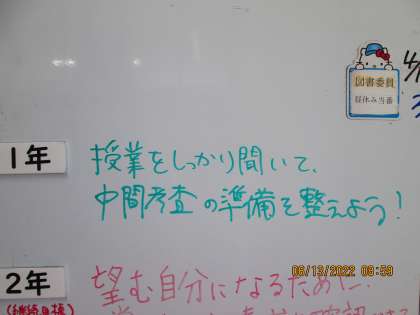 図書委員
昼休み当番
1年
授業をしっかり聞いて、
中間考査の準備を整えよう!
2年
望む自分になるために、
06/13/2022 09:59